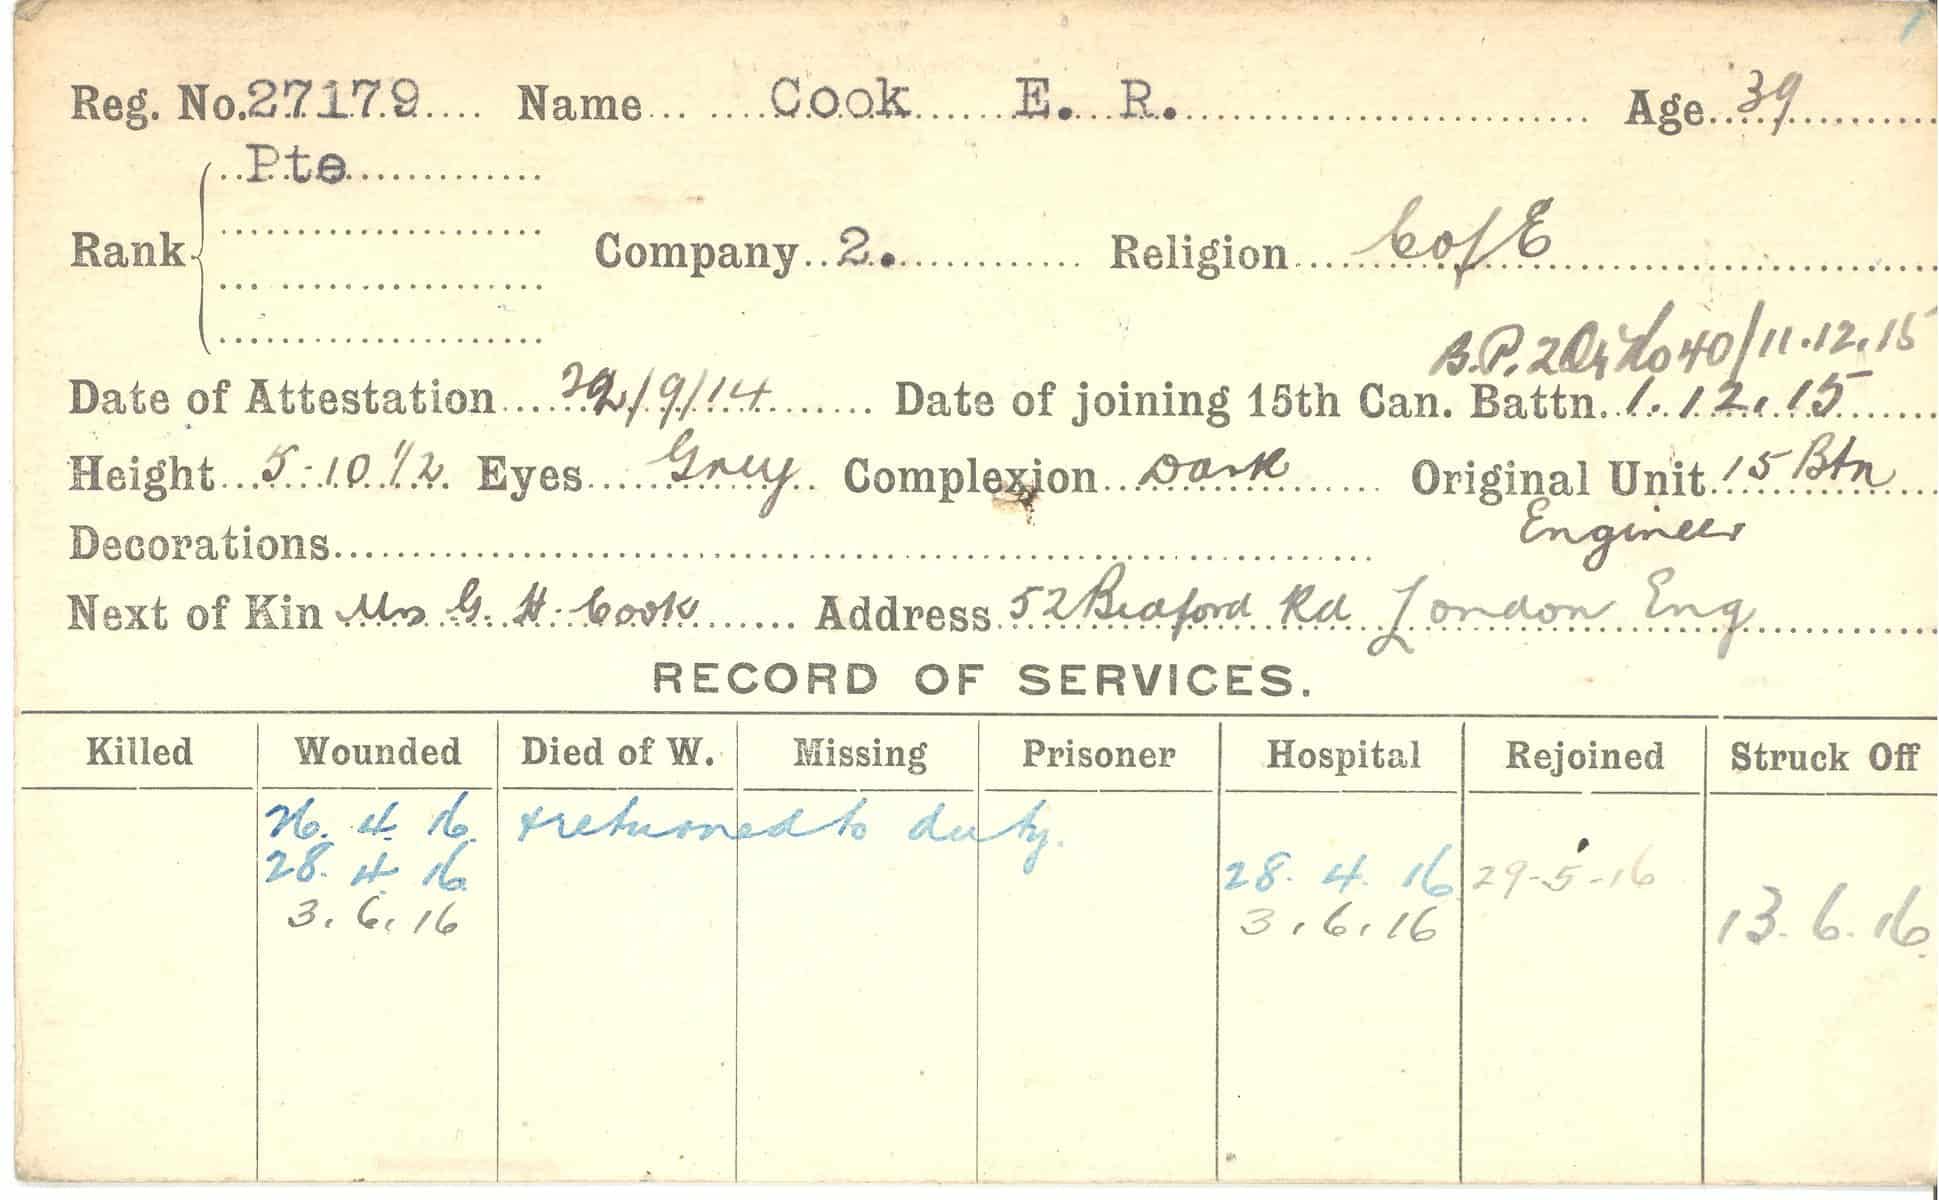 Reg. No. 27179 Name Cook E. R. Age 39
Pte
Rank Company 2. Religion C of E
B.P. 2 No 40/11.12.15
Date of Attestation 22/9/14 Date of joining 15th Can. Battn. 1.12.15
Height 5-10 1/2 Eyes Grey Complexion Dark Original Unit 15 Btn
Decorations Engineer
Next of Kin Mrs G. H. Cook Address 52 Bedford Rd London Eng
RECORD OF SERVICES.
Killed Wounded Died of W. Missing Prisoner Hospital Rejoined Struck Off
26. 4. 16. & returned to duty.
28. 4. 16. 28. 4. 16. 29-5-16
3. 6. 16 3. 6. 16 13. 6. 16.